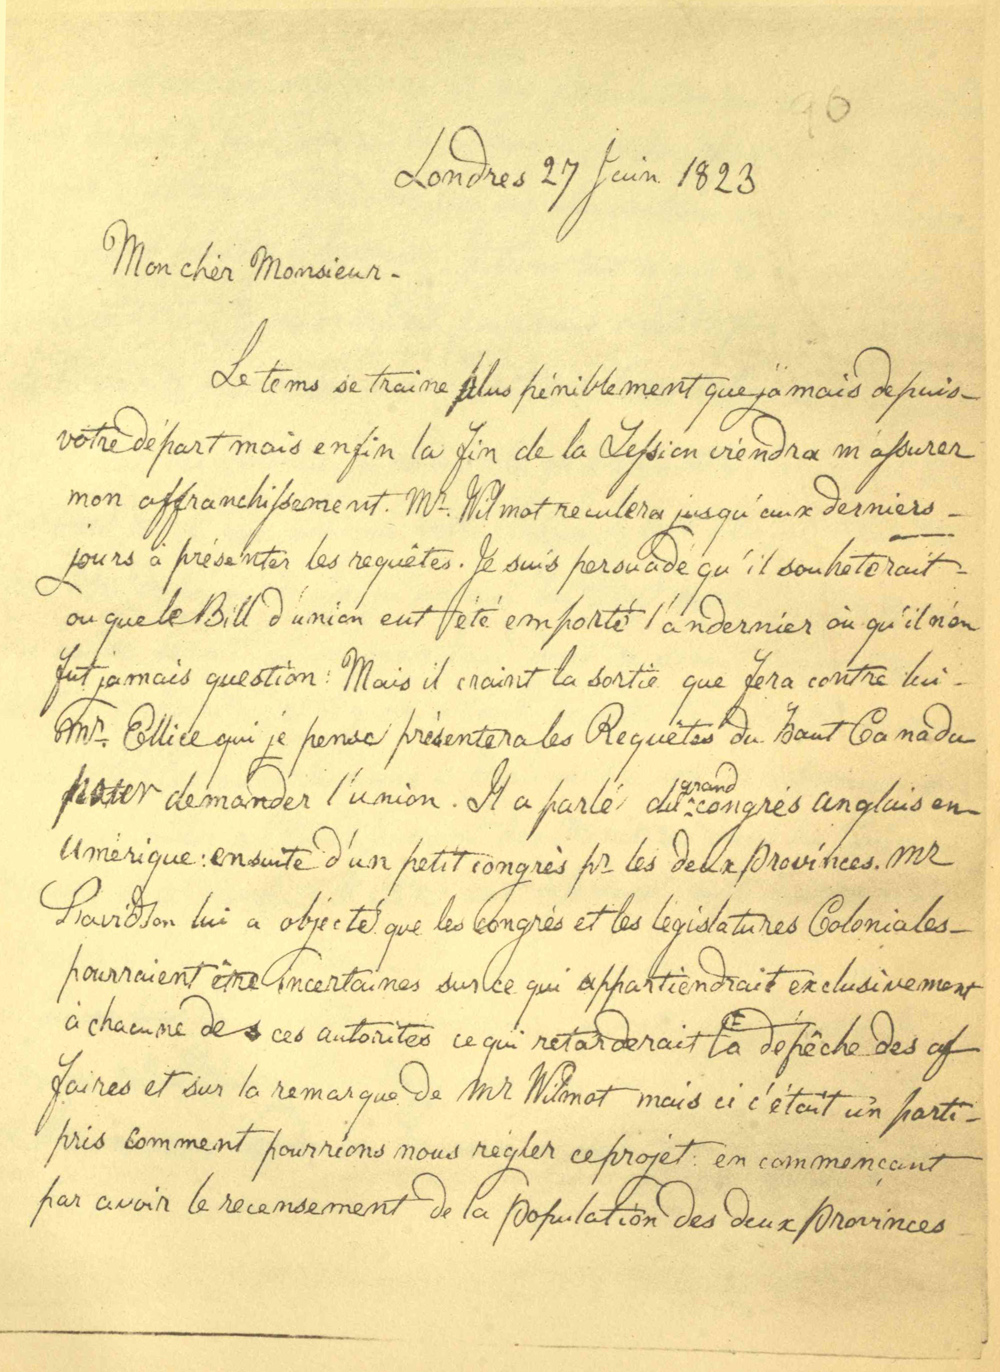 90
Londres 27 Juin 1823
Mon cher Monsieur -
Le tems se traine plus péniblement que jamais depuis-
votre départ mais enfin la fin de la Session viendra m'assurer
mon affranchissement. Mr. Wilmot reculera jusqu'aux derniers -
jours à présenter les requêtes. Je suis persuadé qu'il souheterait -
ou que le Bill d'union eut été emporté l'an dernier ou qu'il n'en
fut jamais question : Mais il craint la sortie que fera contre lui -
Mr. Ellice qui je pense présentera les Requêtes du haut Canada
pour demander l'union. Il a parlé du grand congrés anglais en-
Amérique : ensuite d'un petit congrès pr les deux Provinces. Mr
Davidson lui a objecté que les congrés et les legislatures Coloniales-
pourraient être incertaines sur ce qui appartiendrait exclusivement
à chacune de s ces autorités ce qui retarderait la dépêche des af
faires et sur la remarque de Mr Wilmot mais si c'était un parti-
pris comment pourrions nous régler ce projet : en commençant
par avoir le recensement de la Population des deux Provinces